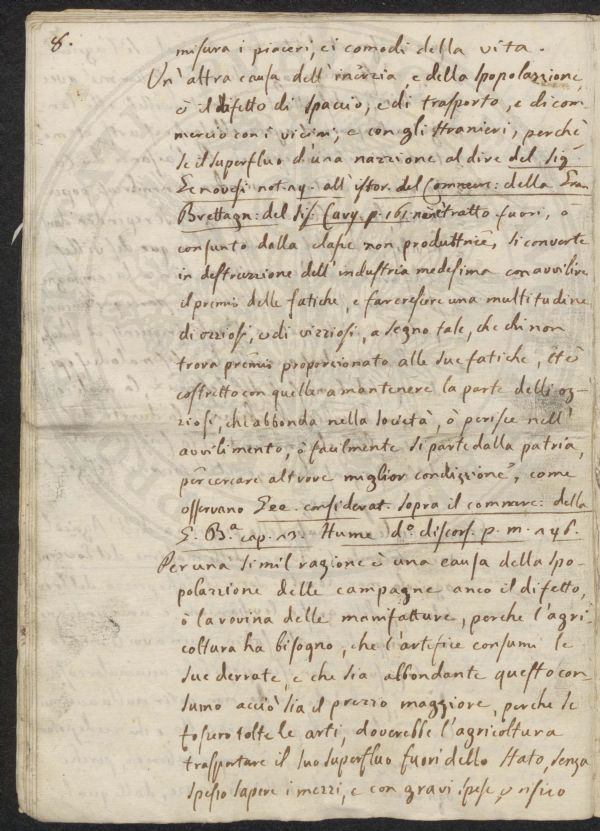 8.
misura i piaceri, ei comodi della vita.
Un' altra causa dell' inerzia, e della spopolazzione,
è il difetto di spaccio, e di trasporto, e di com-
mercio con i vicini, e con gli stranieri, perchè
se il superfluo d'una nazzione al dire del Sig.
Genovesi not. 14. all' istor. del Commerc: della Gran
Brettagn: del Sis: Cary. p. 161 non è tratto fuori, o
consunto dalla classe non produttrice, si converte
in destruzzione dell' industria medesima con avvilire
il premio delle fatiche, e far crescere una multitudine
di ozziosi, e di vizziosi, a segno tale, che chi non
trova premio proporcionato alle sue fatiche, et è
costretto con quelle a mantenere la parte delli oz-
ziosi, che abbonda nella società, ò perisce nell'
avvilimento, ò facilmente si parte dalla patria,
per cercare altrove miglior condizzione, come
osservano Gee. considerat. sopra il commerc: della
G. B.ª cap. 13. Hume d.º discors. p. m. 146.
Per una simil ragione è una causa della spo-
polazzione delle campagne anco il difetto,
ò la rovina delle manifatture, perche l'agri-
coltura ha bisogno, che l'artefice consumi le
sue derrate, e che sia abbondante questo con-
sumo acciò sia il prezzo maggiore, perche se
fossero tolte le arti, doverebbe l'agricoltura
trasportare il suo superfluo fuori dello Stato, senza
spesso sapere i mezzi, e con gravi spese, e risico